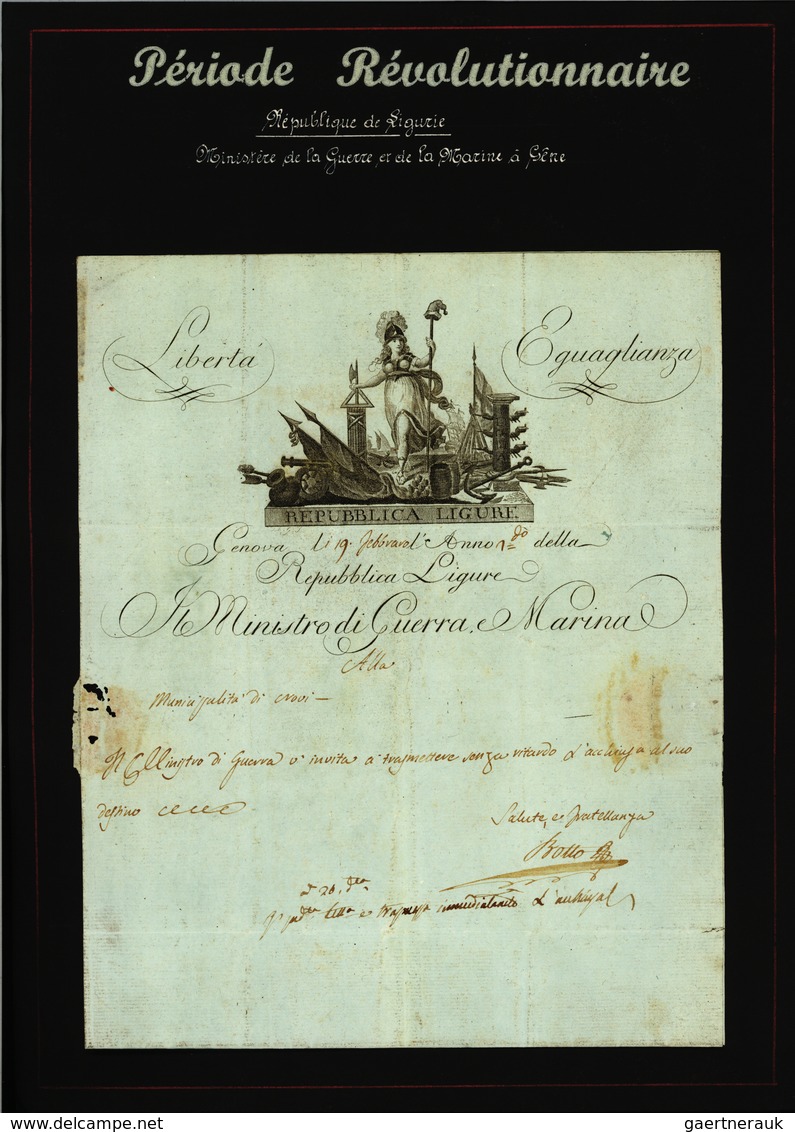 Période Révolutionnaire
République de Ligurie
Ministère de la Guerre et de la Marine à Gêne
Libertá Eguaglianza
REPUBBLICA LIGURE
Genova li 19. febbraro l'Anno della
Repubblica Ligure
Il Ministro di Guerra, e Marina
Alla
Municipalità di Novi
Il Ministro di Guerra v'invita a trasmettere senza ritardo l'acclusa al suo
destino
Salute, e fratellanza
Bollo
trasmessa
delcampe.net gaertnerauk